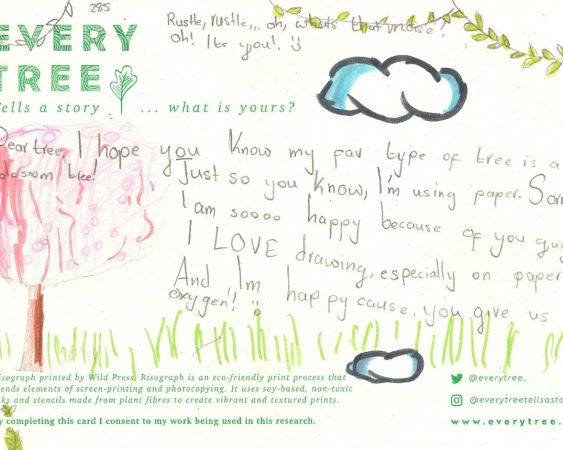 285
EVERY
TREE
Tells a story ... what is yours?
Rustle, rustle... oh, what's that noise?
Oh! Its you! :)
Dear tree, I hope you know my fav type of tree is a
blossom tree!
Just so you know, I'm using paper. Sorr
I am soooo happy because of you guy
I LOVE drawing, especially on paper
And I'm happy cause you give us
oxygen!!
isograph printed by Wild Press. Risograph is an eco-friendly print process that
ends elements of screen-printing and photocopying. It uses soy-based, non-toxic
ks and stencils made from plant fibres to create vibrant and textured prints.
y completing this card I consent to my work being used in this research.
@everytree_
@everytreetellsasto
www.everytree.